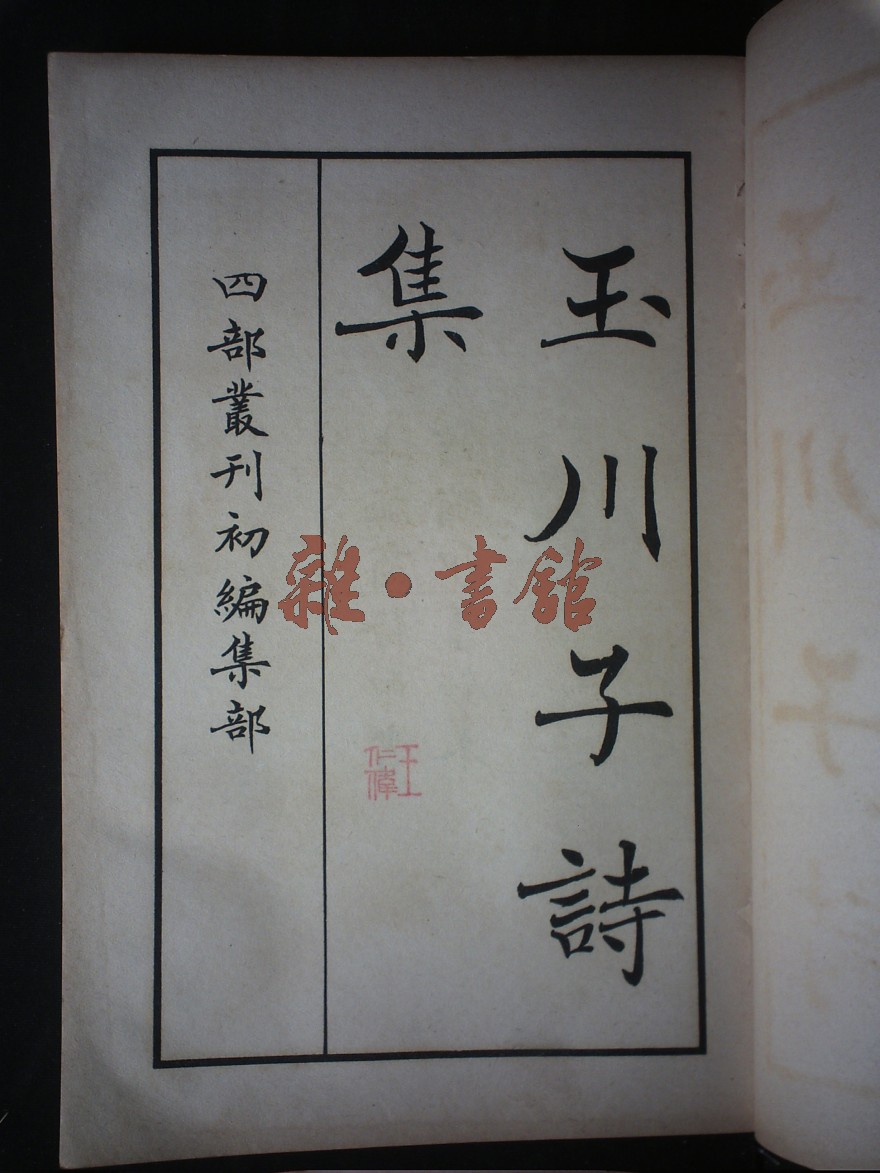 玉川子詩
集
四部叢刊初編集部
雜·書館
王仁偉